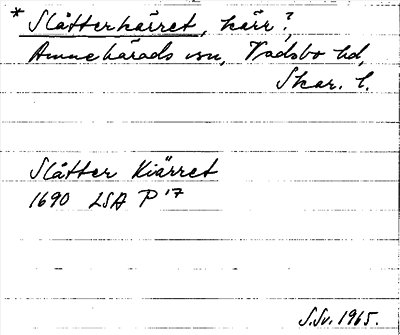 * Slåtterkärret, kärr?
Amnehärads sn, Vadsbo hd,
Skar. l.
Slåtter Kiärret
1690 LSA P 17
S.Sv. 1965.